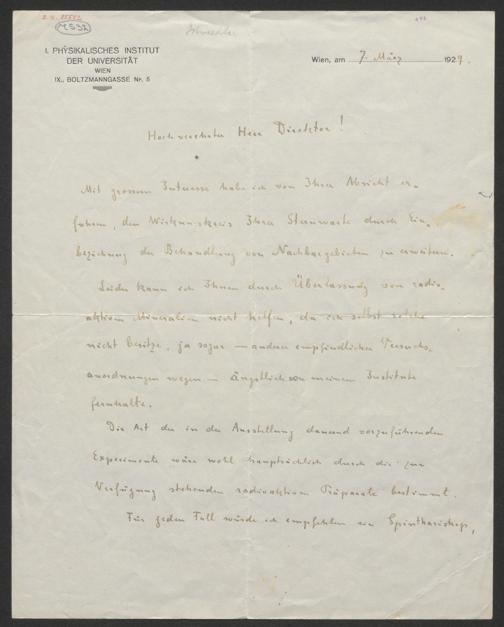 I. PHYSIKALISCHES INSTITUT
DER UNIVERSITÄT
WIEN
IX., BOLTZMANNGASSE Nr. 5
Wien, am 7. März 1927.
Hochverehrter Herr Direktor!
Mit grossem Interesse habe ich von Ihrer Absicht er-
fahren, den Wirkungskreis Ihrer Sternwarte durch Ein-
beziehung der Behandlung von Nachbargebieten zu erweitern.
Leider kann ich Ihnen durch Überlassung von radio-
aktiven Mineralien nicht helfen, da ich selbst solche
nicht besitze, ja sogar — anderer empfindlicher Versuchs-
anordnungen wegen — ängstlich von meinem Institute
fernhalte.
Die Art der in der Ausstellung dauernd vorzuführenden
Experimente wäre wohl hauptsächlich durch die zur
Verfügung stehenden radioaktiven Präparate bestimmt.
Für jeden Fall würde ich empfehlen ein Spinthariskop,